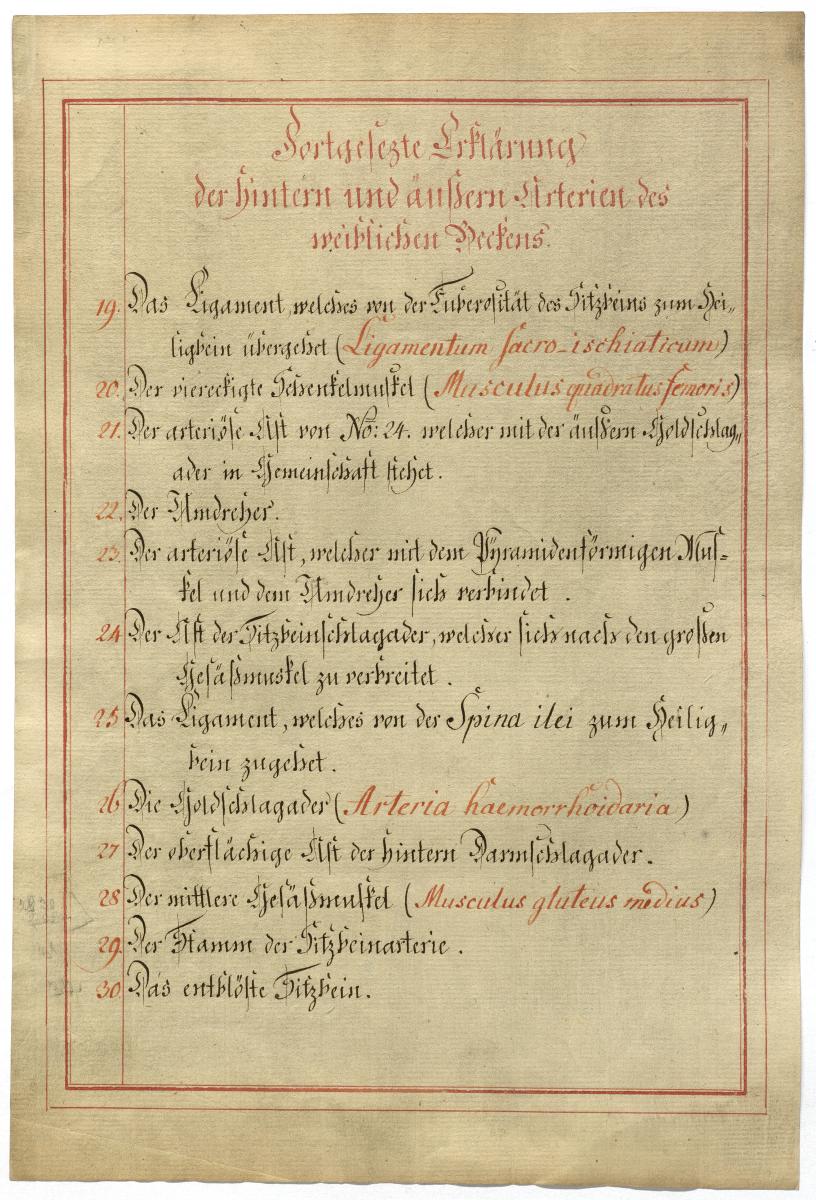 Fortgesezte Erklärung
der hintern und äußern Arterien des
weiblichen Beckens.
19. Das Ligament, welches von der Tuberosität des Sitzbeins zum Hei„
ligbein übergehet (Ligamentum sacro-ischiaticum)
20. Der viereckigte Schenkelmuskel (Musculus quadratus femoris)
21. Der arteriöse Ast von No: 24. welcher mit der äußern Goldschlag„
ader in Gemeinschaft stehet.
22. Der Umdreher.
23. Der arteriöse Ast, welcher mit dem Pyramidenförmigen Mus-
kel und dem Umdreher sich verbindet .
24 Der Ast der Sitzbeinschlagader, welcher sich nach den großen
Gesäßmuskel zu verbreitet .
25 Das Ligament, welches von der Spina ilei zum Heilig„
bein zugehet.
26 Die Goldschlagader (Arteria haemorrhoidaria)
27 Der oberflächige Ast der hintern Darmschlagader.
28 Der mittlere Gesäßmuskel (Musculus gluteus medius)
29. Der Stamm der Sitzbeinarterie .
30 Das entblöste Sitzbein.